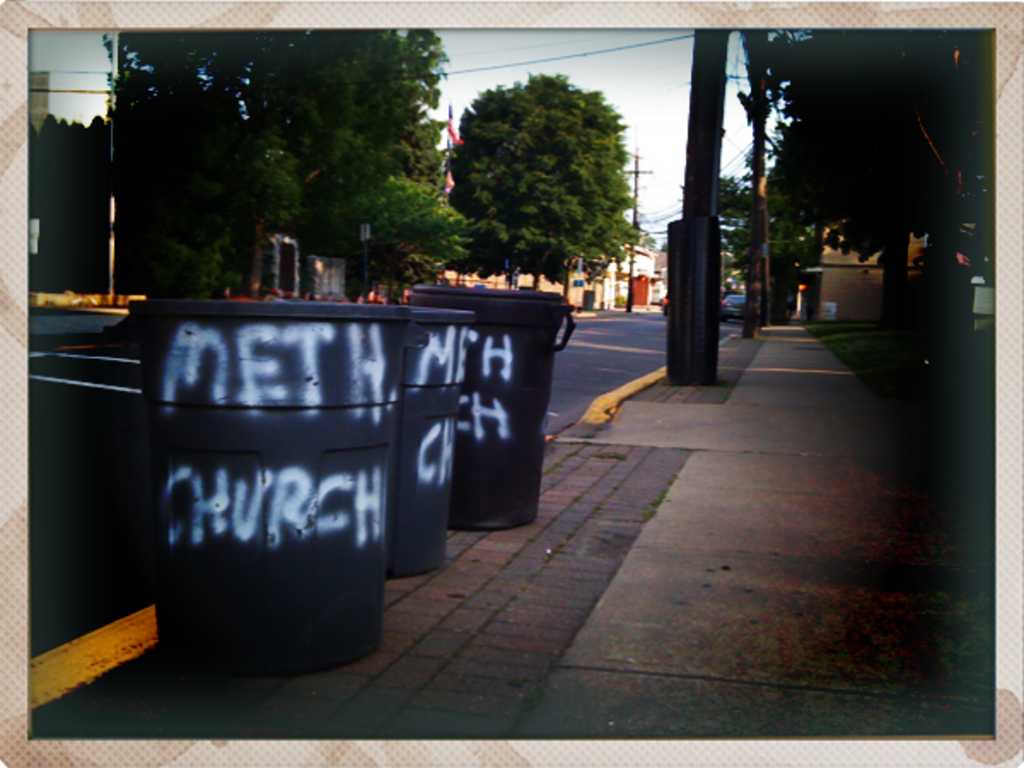 METH
CHURCH
METH
CH
CH